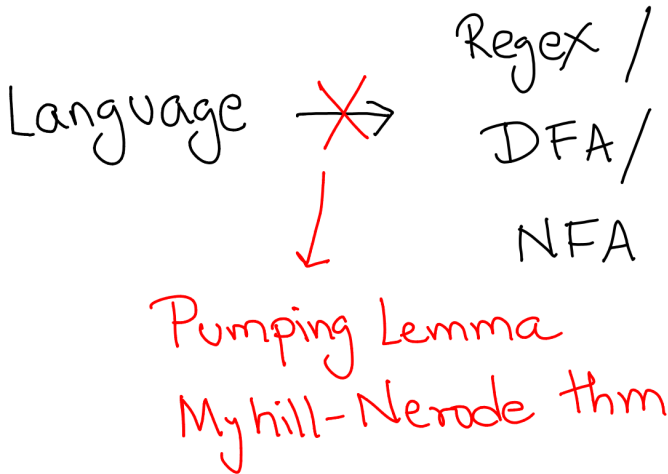 Language
Regex /
DFA /
NFA
Pumping Lemma
Myhill-Nerode thm